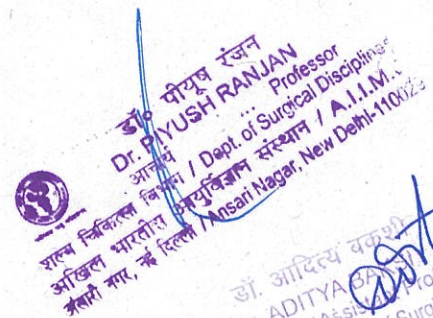 डॉ० पीयूष रंजन
Dr. PIYUSH RANJAN
आचार्य / Professor
शल्य चिकित्सा विभाग / Dept. of Surgical Disciplines
अखिल भारतीय आयुर्विज्ञान संस्थान / A.I.I.M.
अंसारी नगर, नई दिल्ली / Ansari Nagar, New Delhi-110029
डॉ. आदित्य
ADITYA